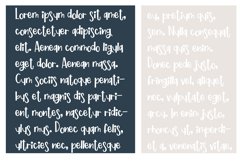 Lorem ipsum dolor sit amet,
consectetuer adipiscing
elit. Aenean commodo ligula
eget dolor. Aenean massa.
Cum sociis natoque penati-
bus et magnis dis parturi-
ent montes, nascetur ridic-
ulus mus. Donec quam felis,
ultricies nec, pellentesque
eu, pretium quis,
sem. Nulla consequat
massa quis enim.
Donec pede justo,
fringilla vel, aliquet
nec, vulputate eget,
arcu. In enim justo,
rhoncus ut, imperdi-
et a, venenatis vitae,